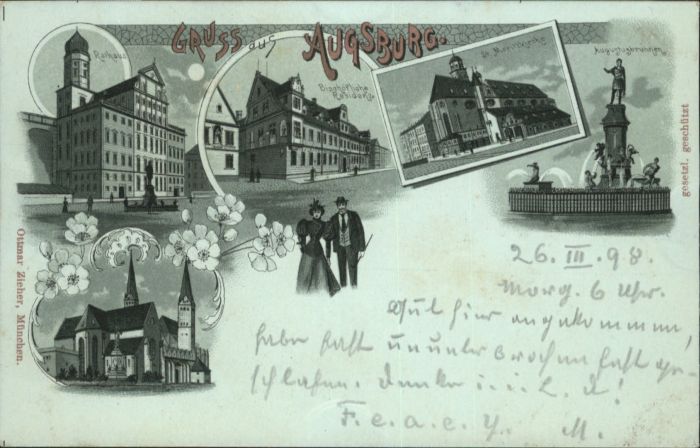 Gruss aus Augsburg.
Rathaus
Bischöfliche
Residenz
St. Moritzkirche
Augustusbrunnen
gesetzl. geschützt
Ottmar Zieher, München.
26. III. 98.
Morg. 6 Uhr.
Gut hier angekommen,
habe fast ununterbrochen fast ge-
schlafen. Danke
F. e. a. e. y. M.